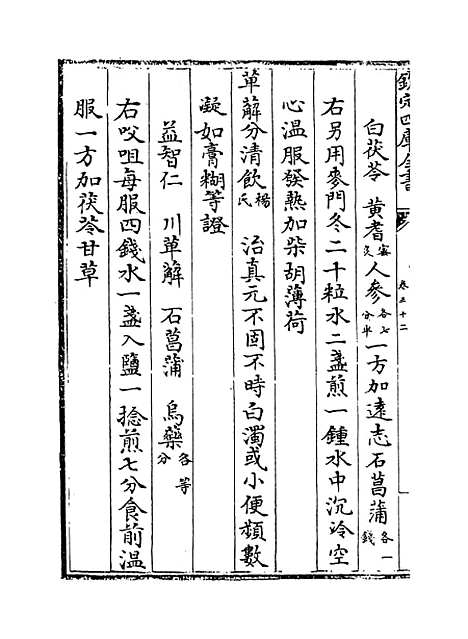 欽定四庫全書
卷五十二
白茯苓 黄耆蜜炙人參各七分半一方加遠志石菖蒲各一錢
右另用麥門冬二十粒水二盞煎一鍾水中沉冷空
心温服發熱加柴胡薄荷
萆薢分清飲楊氏 治真元不固不時白濁或小便頻數
凝如膏糊等證
益智仁 川萆薢 石菖蒲 烏藥各等分
右㕮咀每服四錢水一盞入鹽一捻煎七分食前温
服一方加茯苓甘草